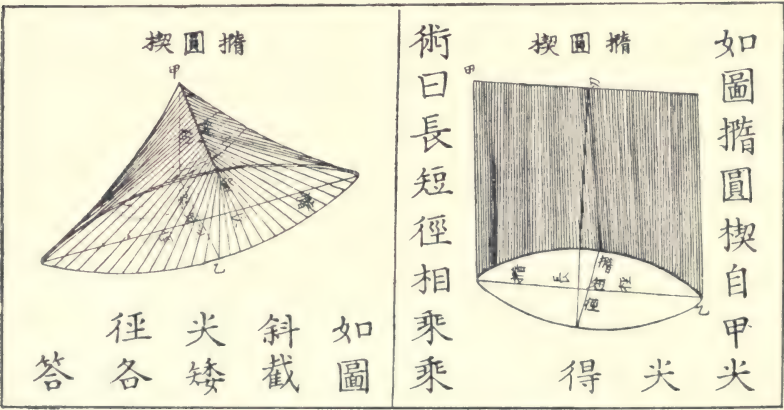 如圖撱圓楔自甲尖
撱圓楔
甲
乙
長徑
尖
得
術曰長短徑相乘乘
撱圓楔
甲
乙
如圖
斜截
尖矮
徑各
答